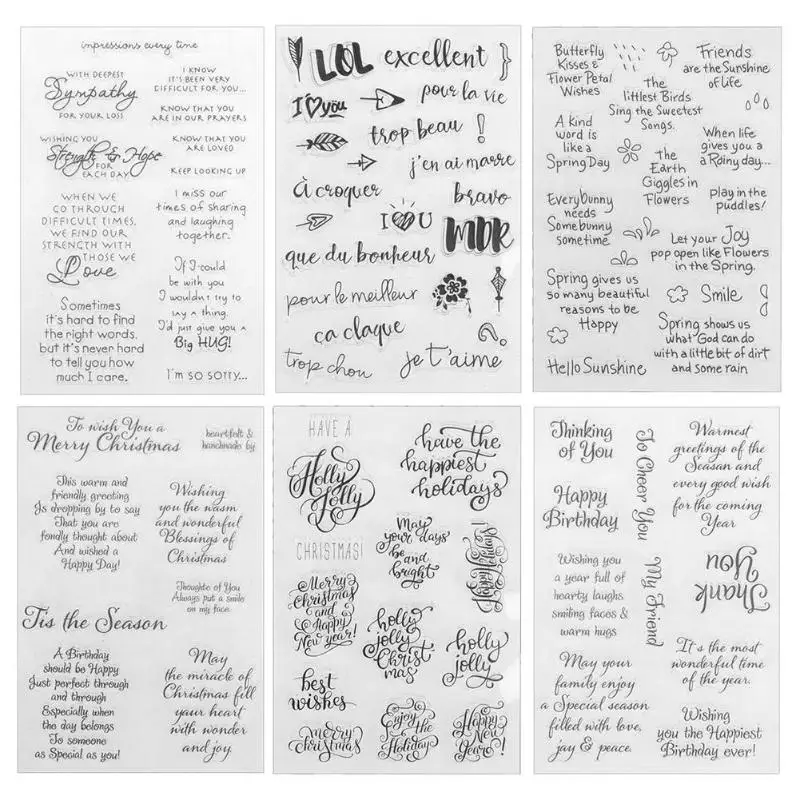 impressions every time
WITH DEEPEST
Sympathy
FOR YOUR LOSS
WISHING YOU
Strength & Hope
FOR
EACH DAY
WHEN WE
GO THROUGH
DIFFICULT TIMES,
WE FIND OUR
STRENGTH WITH
THOSE WE
Love
Sometimes
it's hard to find
the right words,
but it's never hard
to tell you how
much I care.
I KNOW
IT'S BEEN VERY
DIFFICULT FOR YOU...
KNOW THAT YOU
ARE IN OUR PRAYERS
KNOW THAT YOU
ARE LOVED
KEEP LOOKING UP
I miss our
times of sharing
and laughing
together.
If I could
be with you
I wouldn't try to
say a thing.
I'd just give you a
Big HUG!
I'M SO SORRY...
LOL excellent
I you
pour la vie
trop beau !
j'en ai marre
à croquer
bravo
I U
MDR
que du bonheur
pour le meilleur
ça claque
?
trop chou
je t'aime
Butterfly
Kisses &
Flower Petal
Wishes
Friends
are the Sunshine
of Life
The
littlest Birds
Sing the Sweetest
Songs.
A Kind
word is
like a
Spring Day
When life
gives you a
a Rainy day...
The
Earth
Giggles in
Flowers
play in the
puddles!
Everybunny
needs
Somebunny
sometime
Let your Joy
pop open like Flowers
in the Spring.
Spring gives us
so many beautiful
reasons to be
Happy
Smile
Spring shows us
what God can do
with a little bit of dirt
and some rain
Hello Sunshine
To wish You a
Merry Christmas
heartfelt &
handmade by
This warm and
friendly greeting
Is dropping by to say
That you are
fondly thought about
And wished a
Happy Day!
Wishing
you the wasm
and wonderful
Blessings of
Christmas
Thoughts of You
Always put a smile
on my face.
Tis the Season
A Birthday
should be Happy
Just perfect through
and through
Especially when
the day belongs
To someone
as Special as you!
May
the miracle of
Christmas fill
yaur heart
with wonder
and joy.
HAVE A
Holly
Jolly
CHRISTMAS!
have the
happiest
holidays
May
your days
be
and
bright
Merry
Christmas
and
Happy
New year!
holly
jolly
Christ
mas
holly
jolly
best
wishes
merry
christmas
Enjoy
the
Holiday
Happy
New
Year!
Thinking
of You
To Cheer You
Warmest
greetings of the
Seasan and
every good wish
for the coming
Year
Happy
Birthday
My Friend
Thank
You
Wishing you
a year full of
hearty laughs
smiling faces &
warm hugs
It's the most
wonderful time
of the year.
May your
family enjoy
a Special season
filled with love,
jay & peace.
Wishing
you the Happiest
Birthday ever!